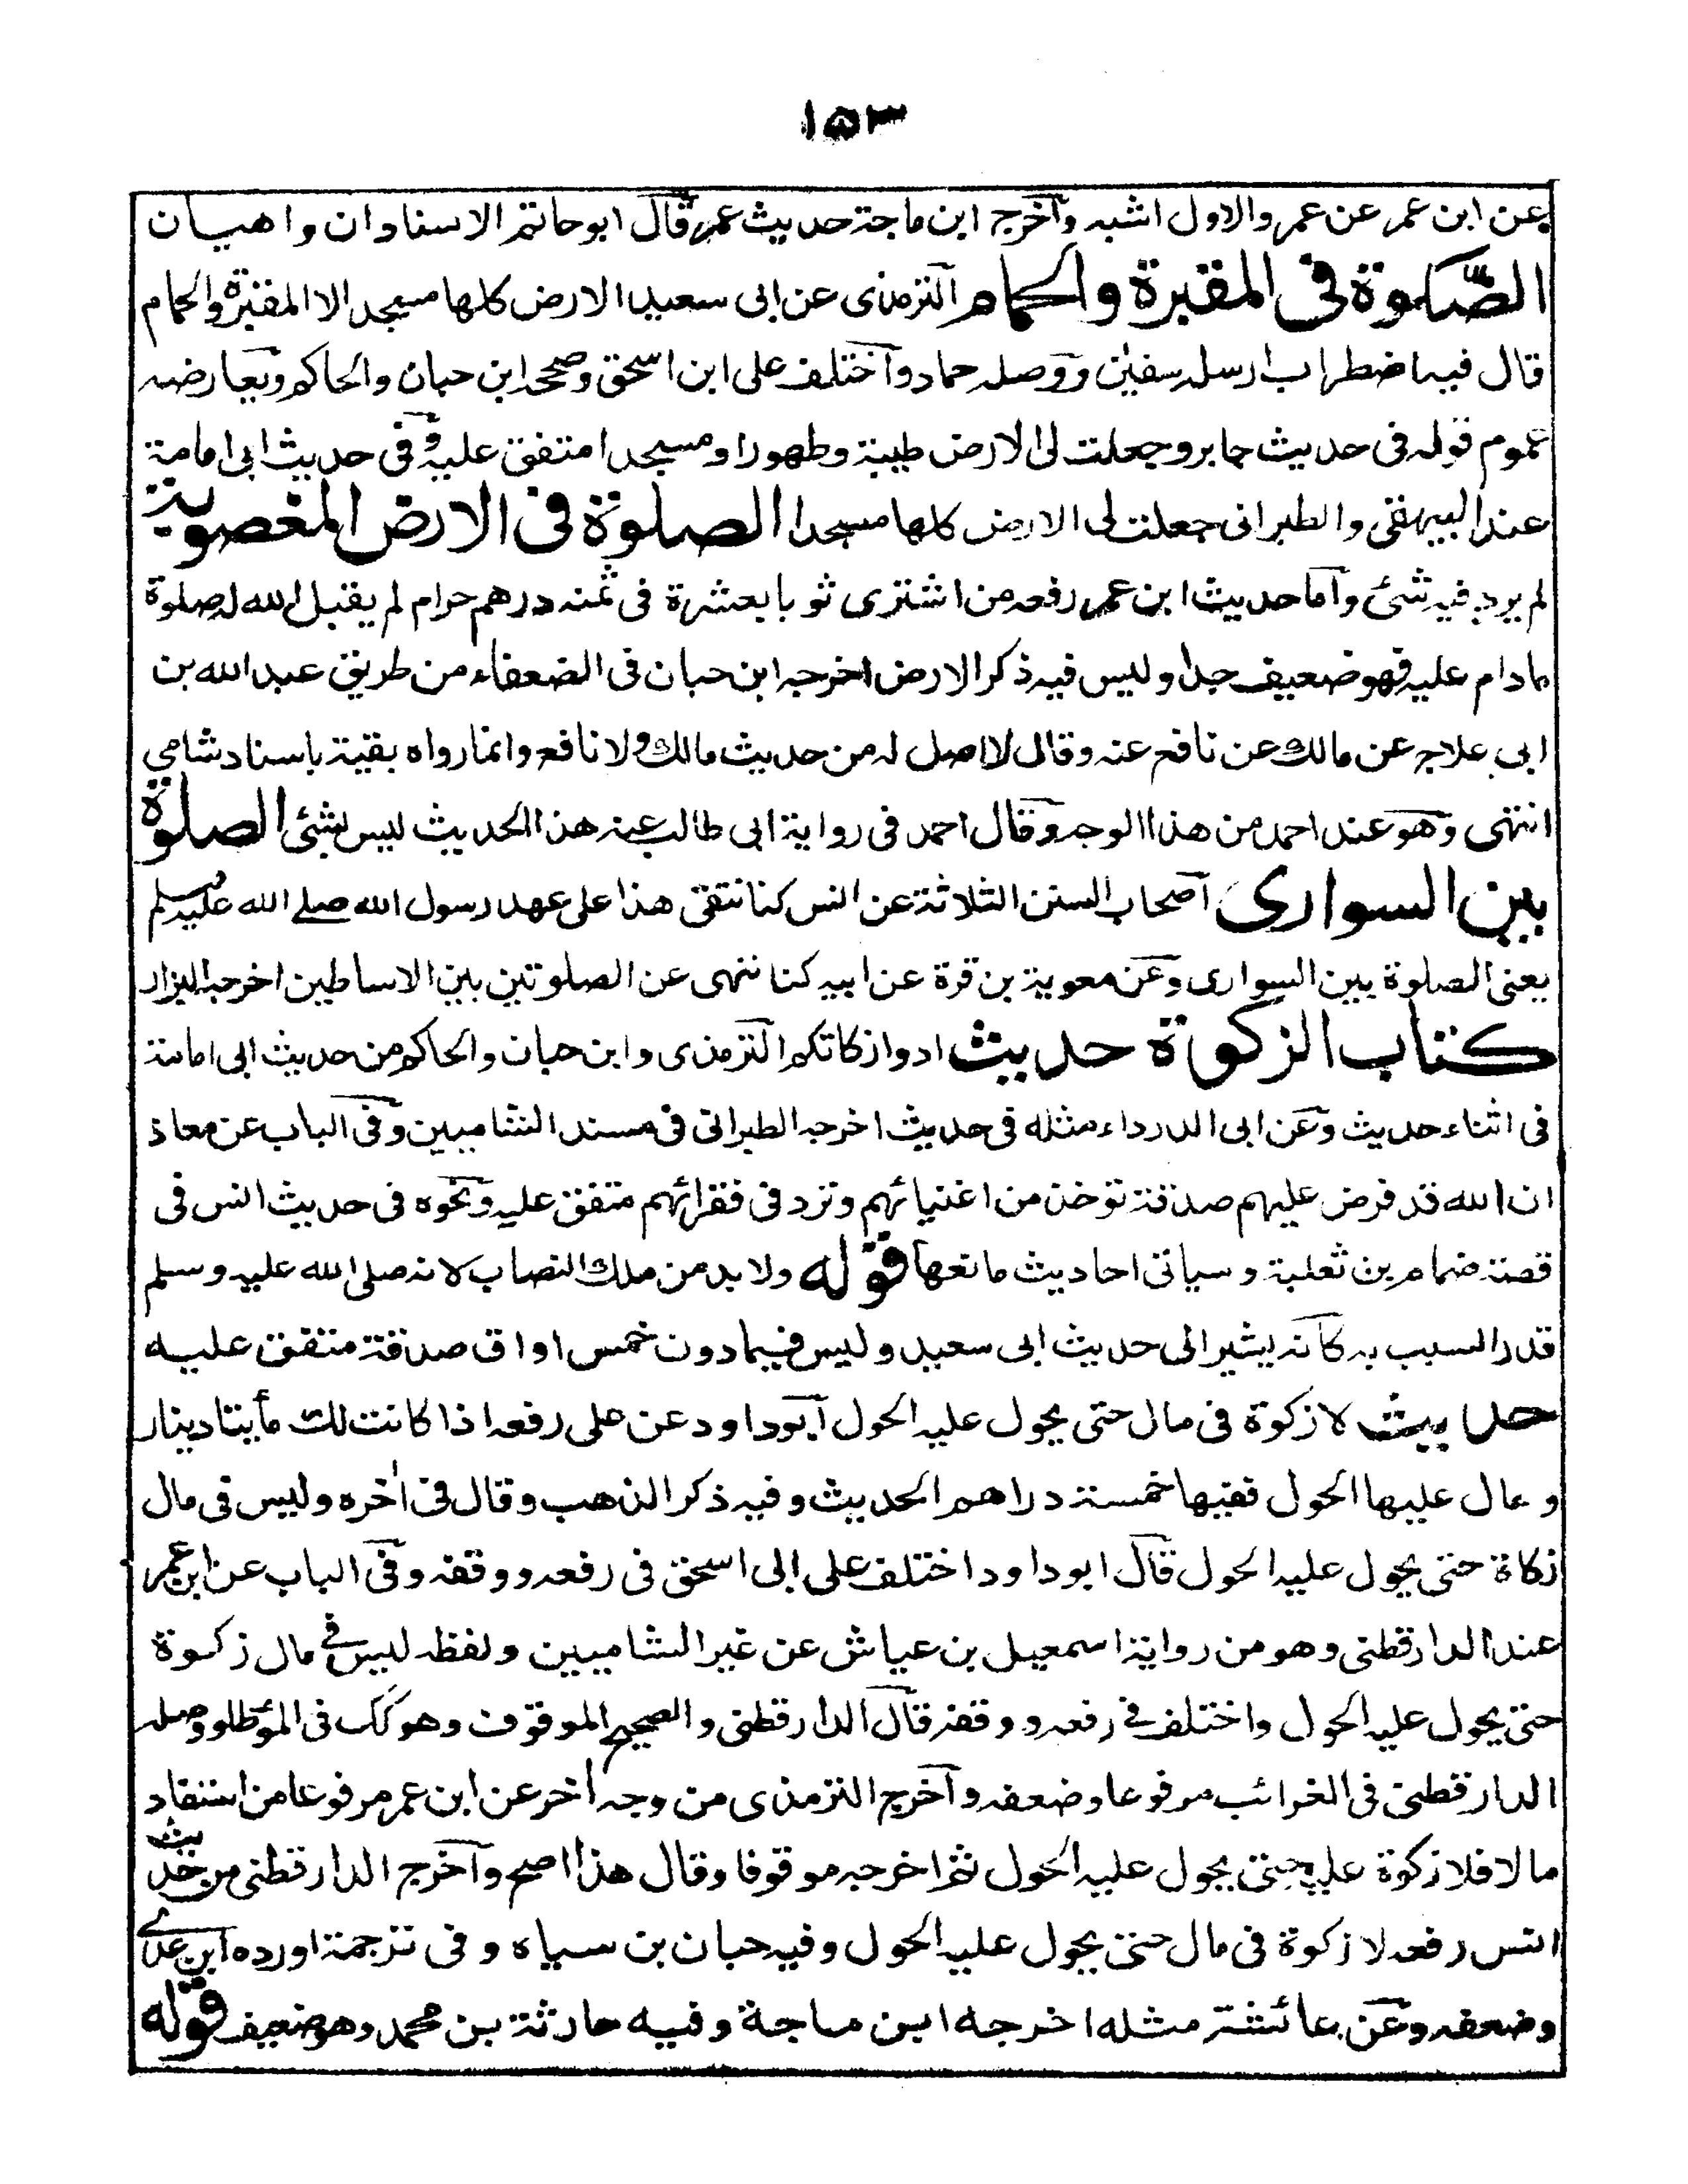 ١٥٣
عن ابن عمر عن عمر والاول اشبه وآخرج ابن ماجة حديث عمر قال ابوحاتم الاسنادان واهيان
الصّلوة فى المقبرة والحمام الترمذى عن ابى سعيد الارض كلها مسجد الا المقبرة والحمام
قال فيه اضطراب ارسله سفين ووصله حماد وآختلف على ابن اسحق وصححه ابن حبان والحاكم ويعارضه
عموم قوله فى حديث جابر وجعلت لى الارض طيبة وطهورا ومسجدا متفق عليه وفى حديث ابى امامة
عند البيهقى والطبرانى جعلت لى الارض كلها مسجدا الصلوة فى الارض المغصوبة
لم يرد فيه شئ وآما حديث ابن عمر رفعه من اشترى ثوبا بعشرة فى ثمنه درهم حرام لم يقبل الله له صلوة
ما دام عليه فهو ضعيف جدا وليس فيه ذكر الارض اخرجه ابن حبان فى الضعفاء من طريق عبد الله بن
ابى علاج عن مالك عن نافع عنه وقال لا اصل له من حديث مالك ولا نافع وانما رواه بقية باسناد شامى
انتهى وهو عند احمد من هذا الوجه وقال احمد فى رواية ابى طالب عنه هذا الحديث ليس بشئ الصلوة
بين السوارى آصحاب السنن الثلاثة عن انس كنا نتقى هذا على عهد رسول الله صلے الله عليه وسلم
يعنى الصلوة بين السوارى وعن معوية بن قرة عن ابيه كنا ننهى عن الصلوتين بين الاساطين اخرجه البزار
كتاب الزكوة حديث ادوا زكاتكم الترمذى وابن حبان والحاكم من حديث ابى امامة
فى اثناء حديث وعن ابى الدرداء مثله فى حديث اخرجه الطبرانى فى مسند الشاميين وفى الباب عن معاذ
ان الله قد فرض عليهم صدقة توخذ من اغنيائهم وترد فى فقرائهم متفق عليه ونحوه فى حديث انس فى
قصة ضمام بن ثعلبة وسياتى احاديث مانعها قوله ولا بد من ملك النصاب لانه صلى الله عليه وسلم
قدر السبب به كآنه يشير الى حديث ابى سعيد وليس فيما دون خمس اواق صدقة متفق عليه
حديث لا زكوة فى مال حتى يحول عليه الحول آبوداود عن على رفعه اذا كانت لك مأيتا دينار
وحال عليها الحول ففيها خمسة دراهم الحديث وفيه ذكر الذهب وقال فى اٰخره وليس فى مال
زكاة حتى يحول عليه الحول قال ابوداود اختلف على ابى اسحق فى رفعه ووقفه وفى الباب عن ابن عمر
عند الدارقطنى وهو من رواية اسمعيل بن عياش عن غير الشاميين ولفظه ليس فى مال زكوة
حتى يحول عليه الحول واختلف فے رفعه ووقفه قال الدارقطنى والصحيح الموقوف وهو كك فى المؤطا ووصله
الدارقطنى فى الغرائب مرفوعا وضعفه وآخرج الترمذى من وجه اٰخر عن ابن عمر مرفوعا من استفاد
مالا فلا زكوة عليه حتى يحول عليه الحول ثم اخرجه موقوفا وقال هذا اصح وآخرج الدارقطنى من حديث
انس رفعه لا زكوة فى مال حتى يحول عليه الحول وفيه حبان بن سياه وفى ترجمة اورده ابن عدے
وضعفه وعن عائشة مثله اخرجه ابن ماجة وفيه حارثة بن محمد وهو ضعيف قوله